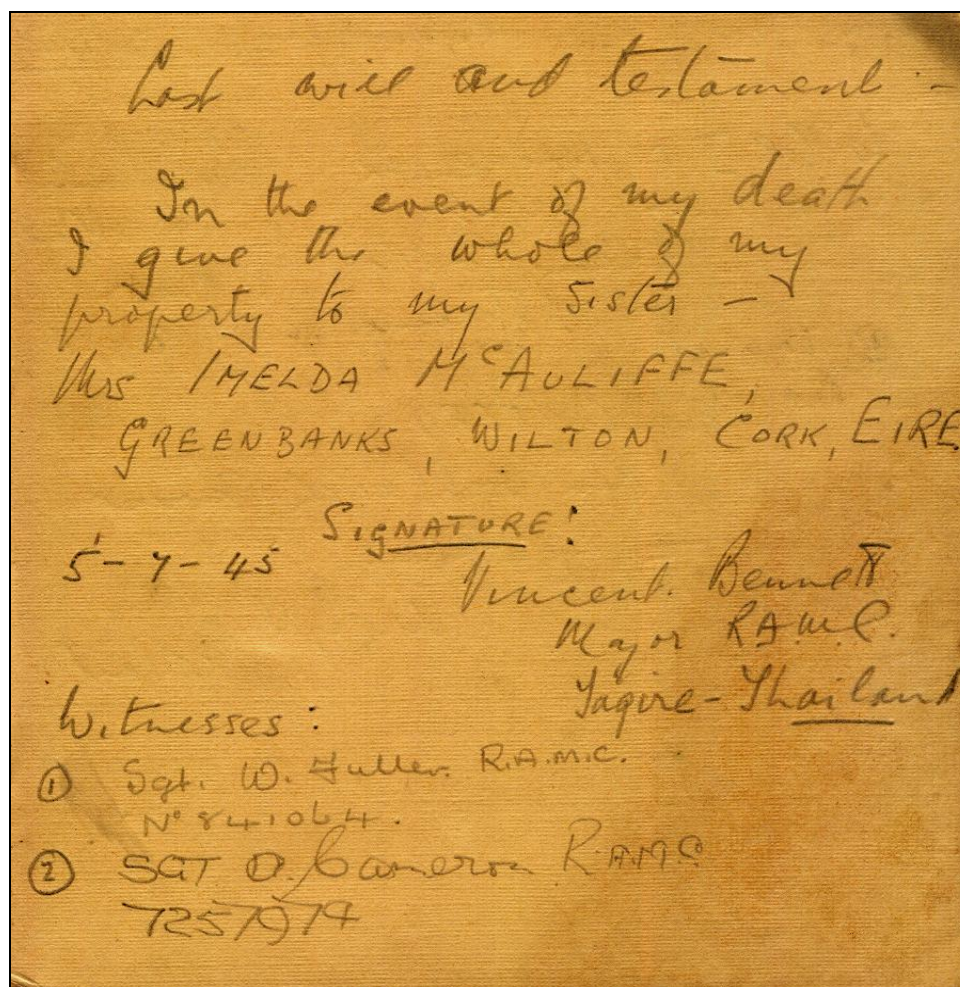 Last will and testament -
In the event of my death
I give the whole of my
property to my sister -
Mrs IMELDA McAULIFFE,
GREENBANKS, WILTON, CORK, EIRE
SIGNATURE:
5-7-45
Vincent. Bennett
Major R.A.M.C.
Taqire-Thailand
Witnesses:
① Sgt. W. Fuller. R.A.M.C.
No 841064.
② SGT D. Cameron R.A.M.C
7257974